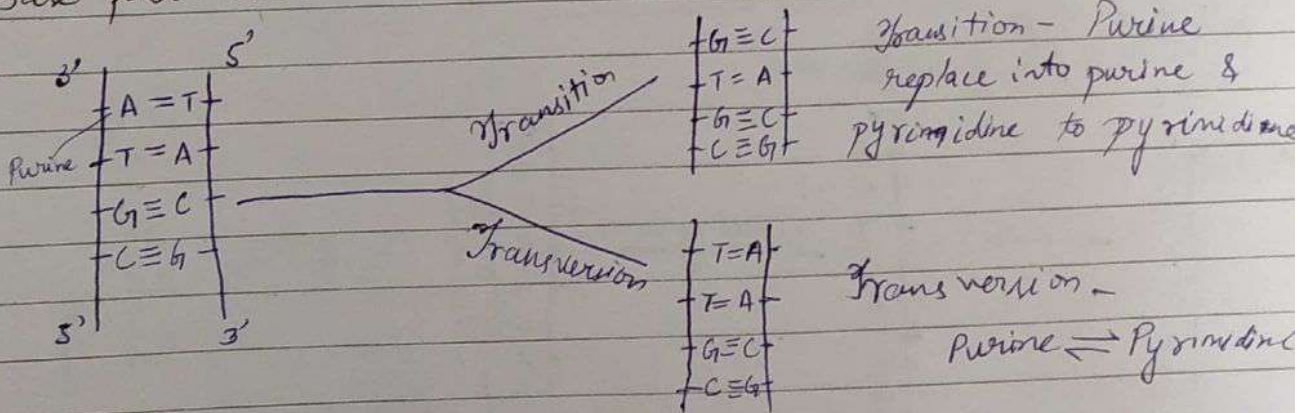 3' 5'
A = T
Purine
T = A
G ≡ C
C ≡ G
5' 3'
Transition
Transversion
G ≡ C
T = A
G ≡ C
C ≡ G
Transition - Purine
replace into purine &
pyrimidine to pyrimidine
T = A
T = A
G ≡ C
C ≡ G
Transversion -
Purine ⇌ Pyrimidine